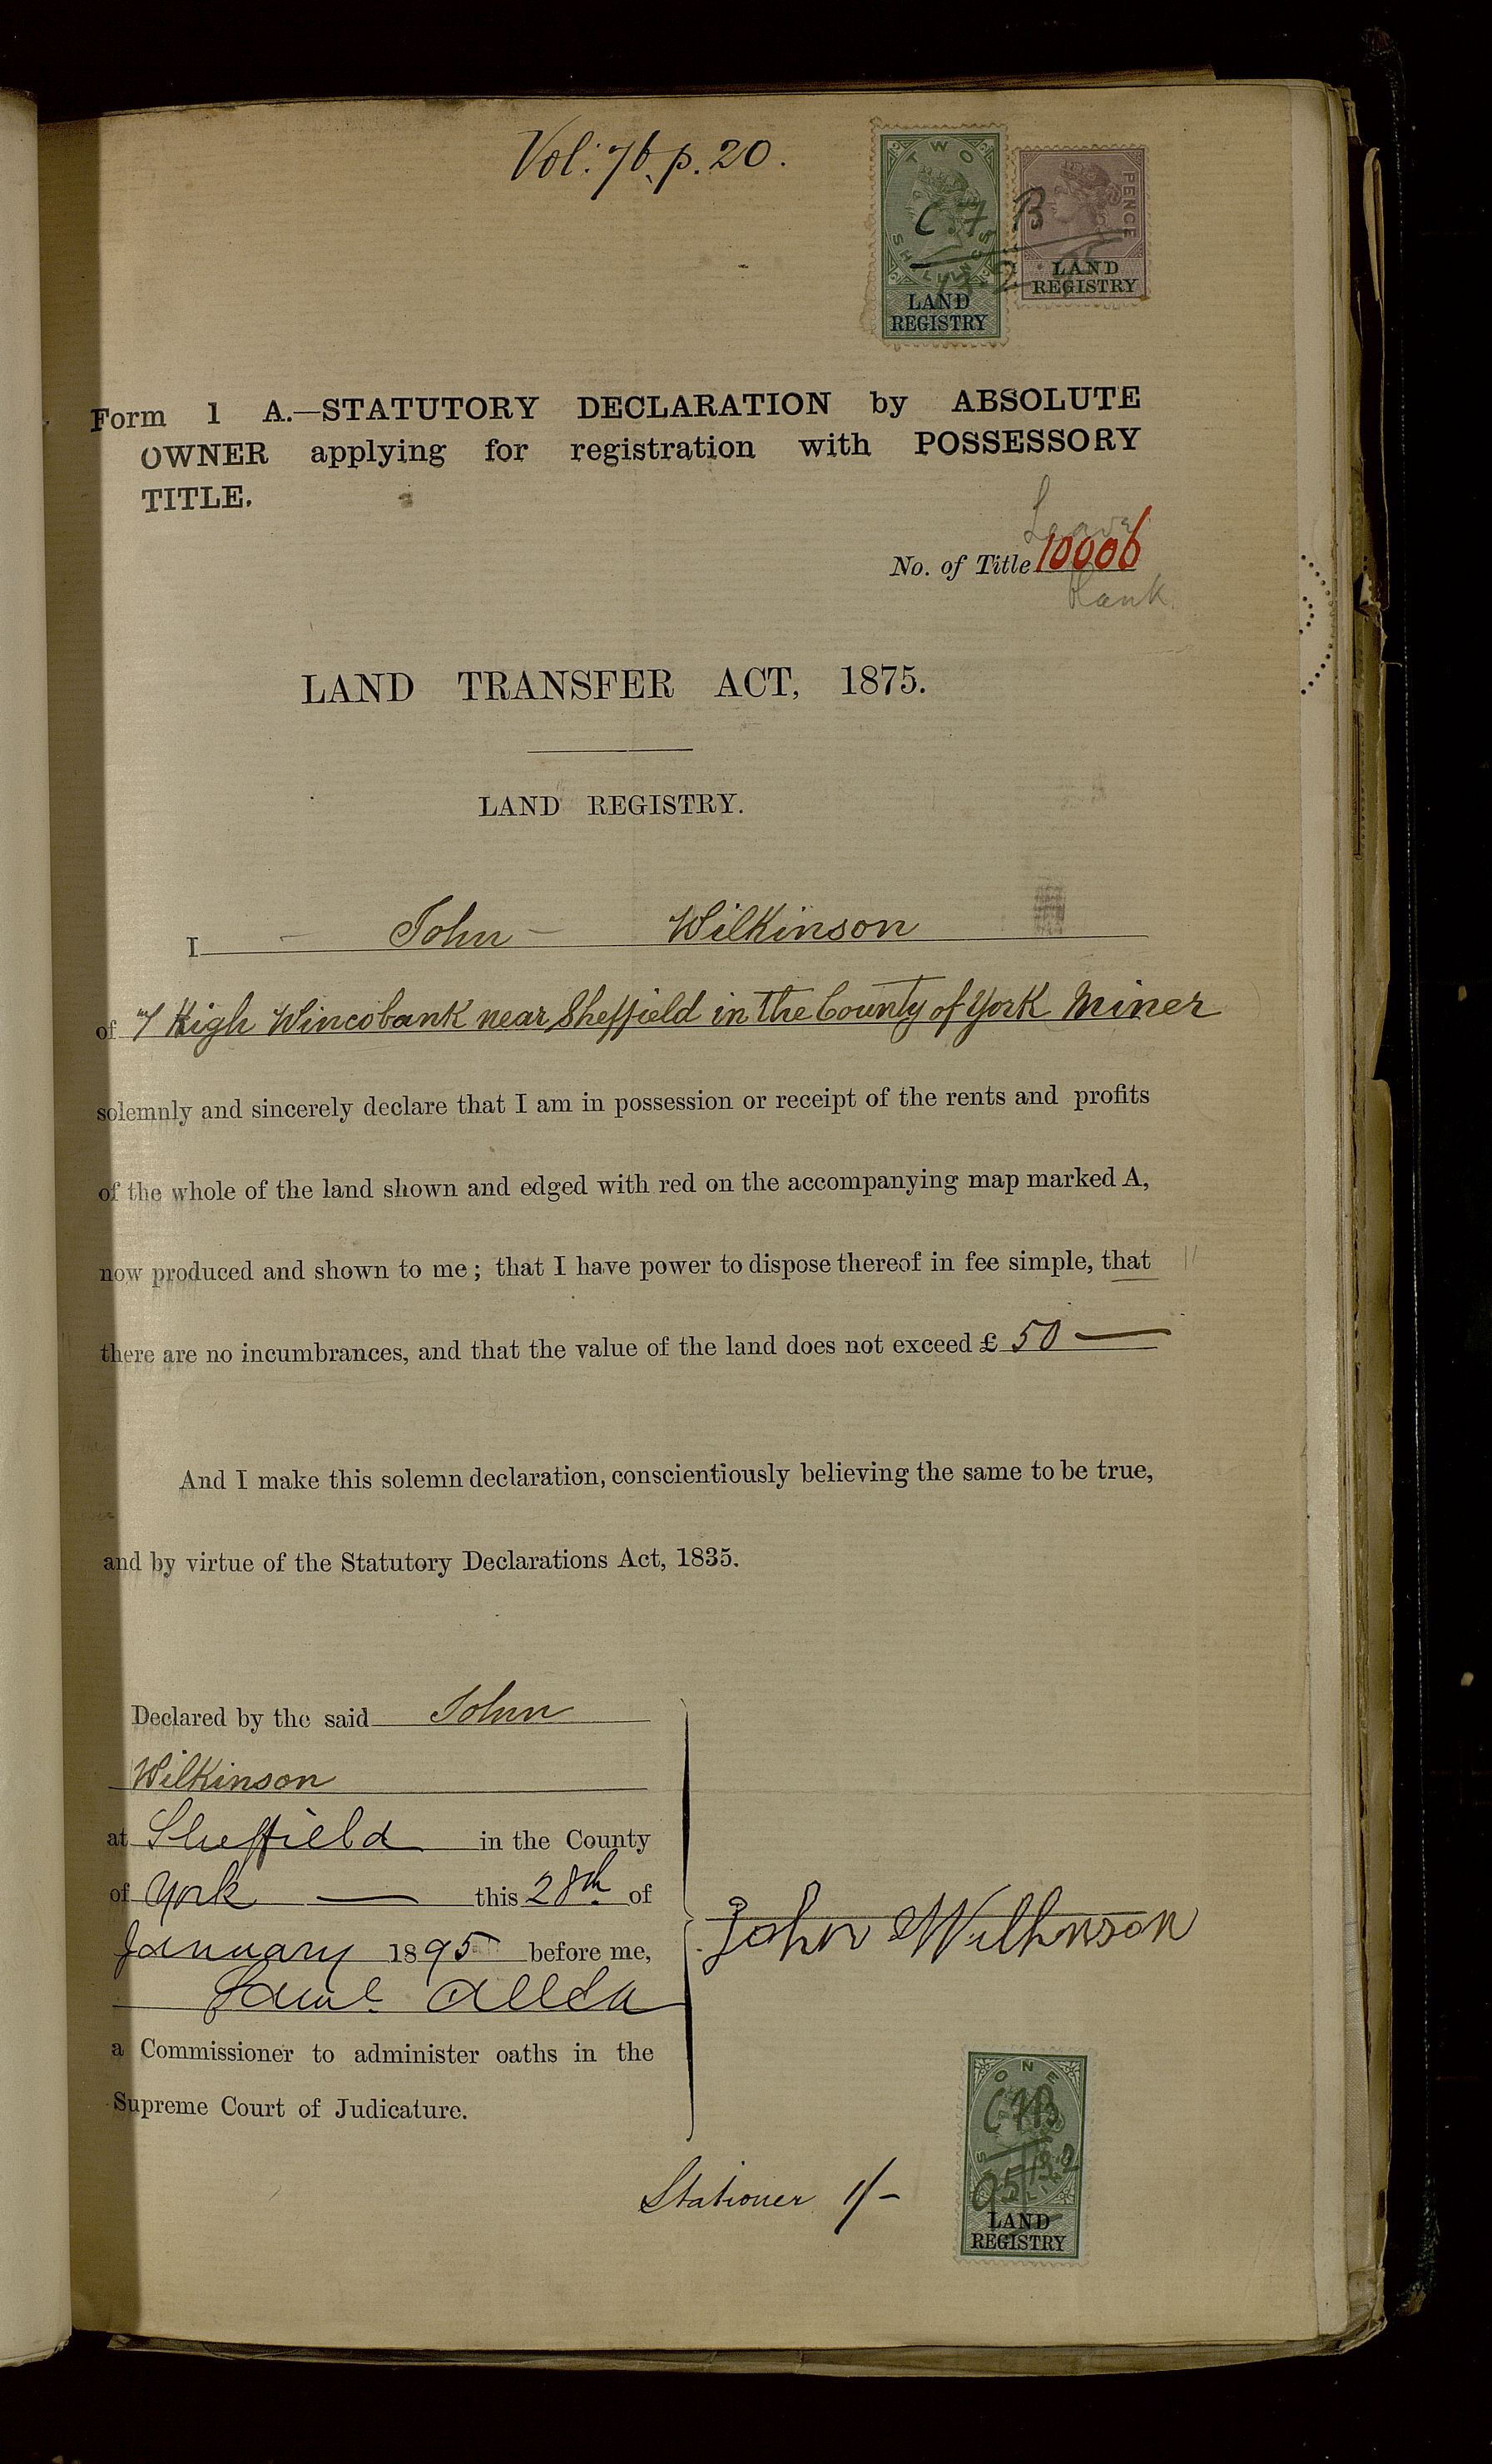 Vol: 76. p. 20.
TWO SHILLINGS
PENCE
C. F. B
LAND
REGISTRY
LAND
REGISTRY
Form 1 A.—STATUTORY DECLARATION by ABSOLUTE
OWNER applying for registration with POSSESSORY
TITLE.
Leave
No. of Title 10006
blank.
LAND TRANSFER ACT, 1875.
LAND REGISTRY.
I John Wilkinson
of 7 High Wincobank near Sheffield in the County of York Miner
solemnly and sincerely declare that I am in possession or receipt of the rents and profits
of the whole of the land shown and edged with red on the accompanying map marked A,
now produced and shown to me; that I have power to dispose thereof in fee simple, that
there are no incumbrances, and that the value of the land does not exceed £ 50 —
And I make this solemn declaration, conscientiously believing the same to be true,
and by virtue of the Statutory Declarations Act, 1835.
Declared by the said John
Wilkinson
at Sheffield in the County
of York — this 28th of
January 1895 before me,
Saml. Allen
a Commissioner to administer oaths in the
Supreme Court of Judicature.
John Wilkinson
Stationer 1/-
ONE
CFB
LAND
REGISTRY